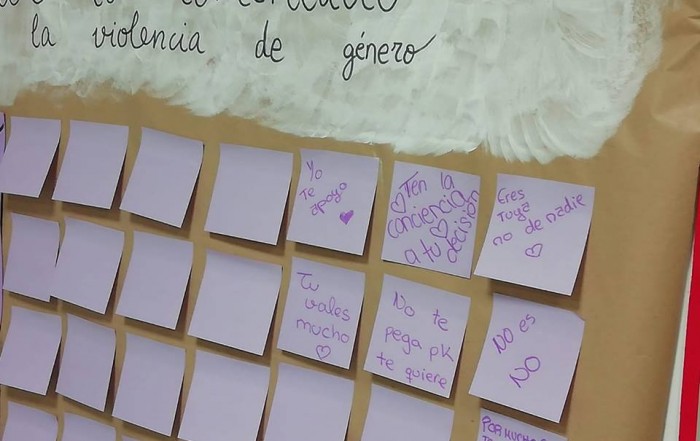 la violencia de género
Yo
Te
apoyo
Ten la
conciencia
a tu decisión
Eres
Tuya
no de nadie
Tu
vales
mucho
No te
pega pk
te quiere
NO es
NO
POR MUCHO